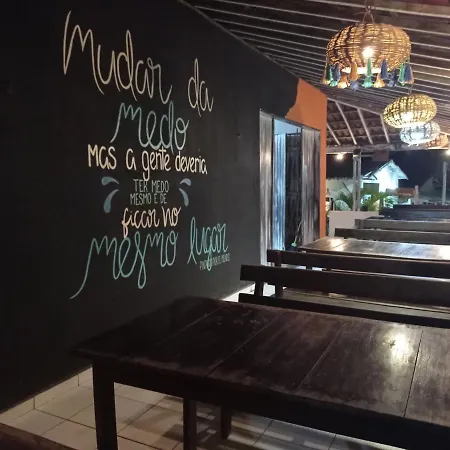 Mudar da
medo
MAS A gente deveria
TER MEDO
MESMO É DE
ficar no
mesmo lugar